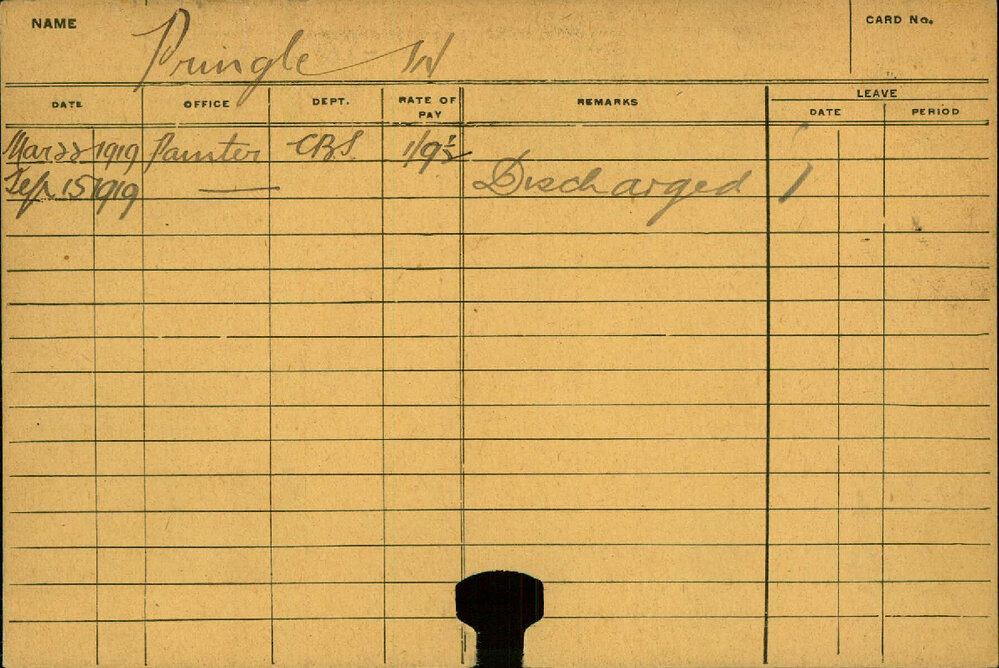 NAME Pringle W CARD No.
DATE OFFICE DEPT. RATE OF PAY REMARKS LEAVE DATE PERIOD
Mar 22 1919 Painter CBS. 1/9½
Sep 15 1919 — Discharged